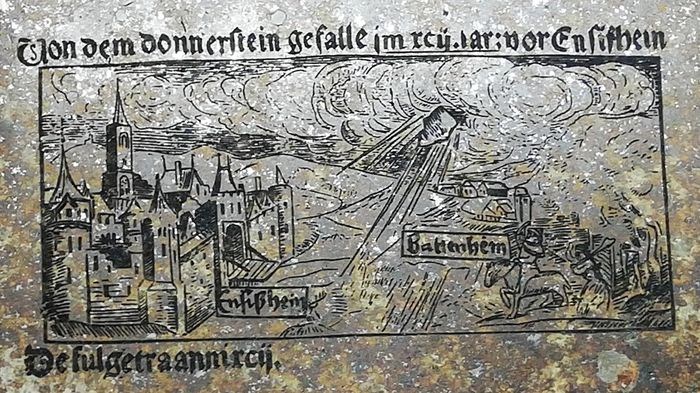 Von dem donnerstein gefalle jm xcij. iar: vor Ensißhein
Battenheim
Ensißheim
De fulgetra anni xcij.